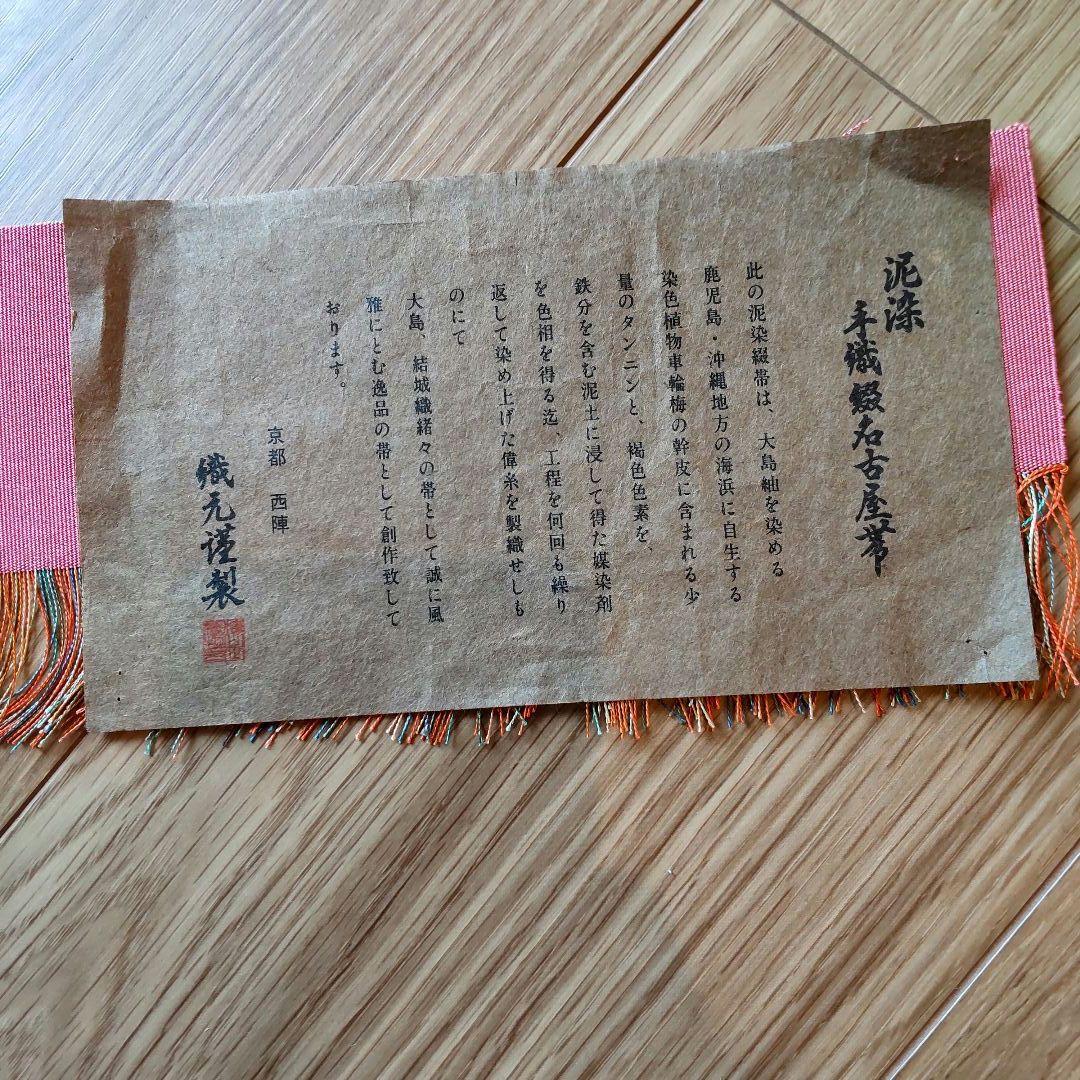 泥染
手織綴名古屋帯
此の泥染綴帯は、大島紬を染める
鹿児島・沖縄地方の海浜に自生する
染色植物車輪梅の幹皮に含まれる少
量のタンニンと、褐色色素を、
鉄分を含む泥土に浸して得た媒染剤
を色相を得る迄、工程を何回も繰り
返して染め上げた偉糸を製織せしも
のにて
大島、結城織緒々の帯として誠に風
雅にとむ逸品の帯として創作致して
おります。
京都 西陣
織元謹製